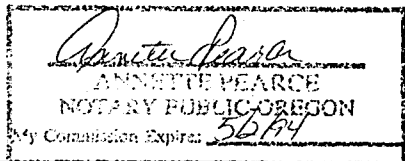 Annette Pearce
ANNETTE PEARCE
NOTARY PUBLIC-OREGON
My Commission Expires